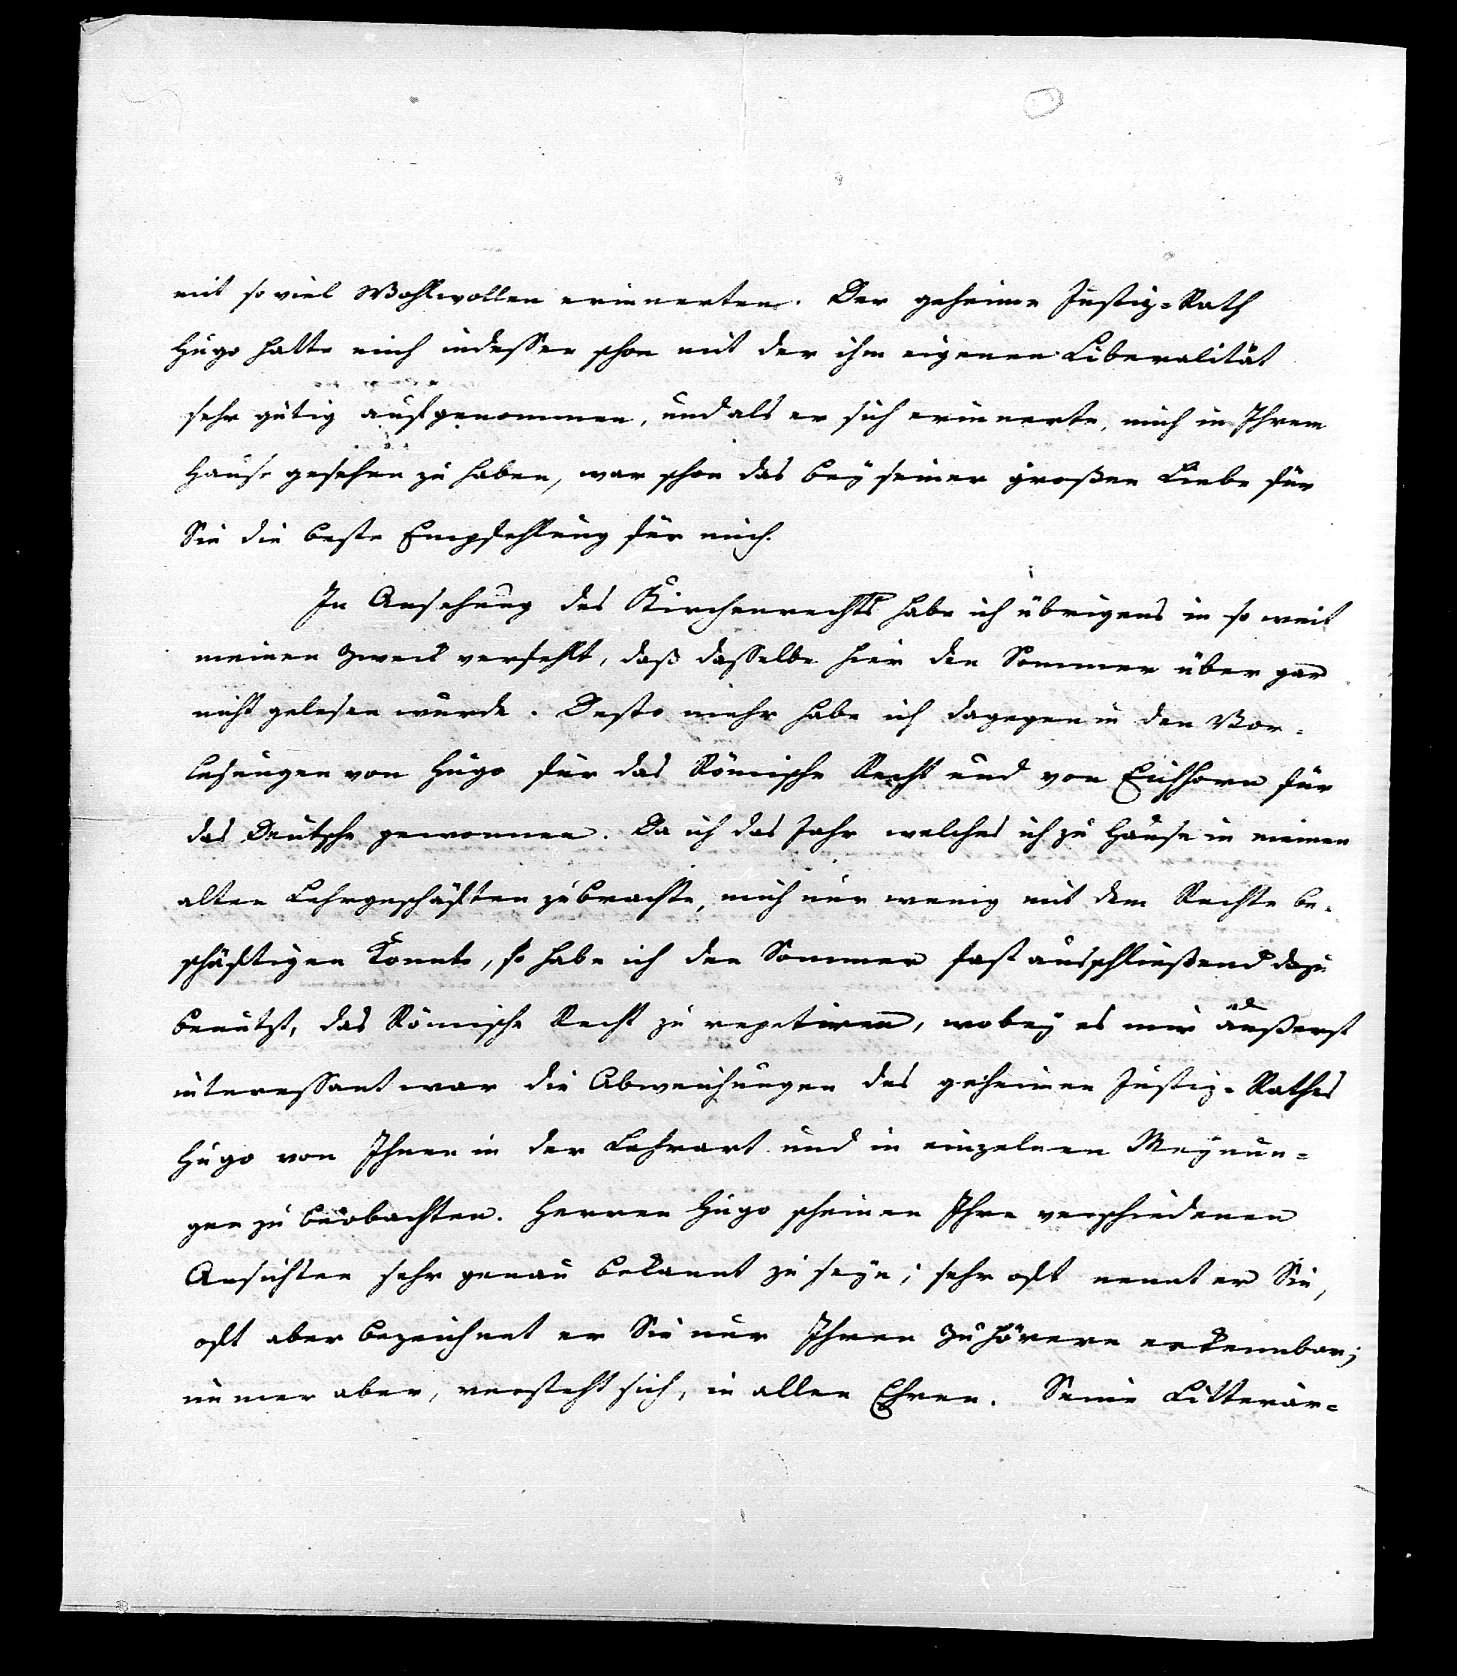 mit so viel Wohlwollen erinnerten. Der geheime Justiz-Rath
Hugo hatte mich indessen schon mit der ihm eigenen Liberalität
sehr gütig aufgenommen, und als er sich erinnerte, mich in Ihrem
Hause gesehen zu haben, war schon das bey seiner großen Liebe für
Sie die beste Empfehlung für mich.
In Ansehung des Kirchenrechts habe ich übrigens in so weit
meinen Zweck verfehlt, daß dasselbe hier den Sommer über gar
nicht gelesen wurde. Desto mehr habe ich dagegen in den Vor-
lesungen von Hugo für das Römische Recht und von Eichhorn für
das Deutsche gewonnen. Da ich das Jahr welches ich zu Hause in meinen
alten Lehrgeschäften zubrachte, mich nur wenig mit dem Rechte be-
schäftigen konnte, so habe ich den Sommer fast ausschließend dazu
benutzt, das Römische Recht zu repetiren, wobey es mir äußerst
interessant war die Abweichungen des geheimen Justiz-Rathes
Hugo von Ihnen in der Lehrart und in einzelnen Meynun-
gen zu beobachten. Herren Hugo scheinen Ihre verschiedenen
Ansichten sehr genau bekannt zu seyn; sehr oft nennt er Sie,
oft aber bezeichnet er Sie nur Ihren Zuhörern erkennbar;
immer aber, versteht sich, in allen Ehren. Seine Litterär-